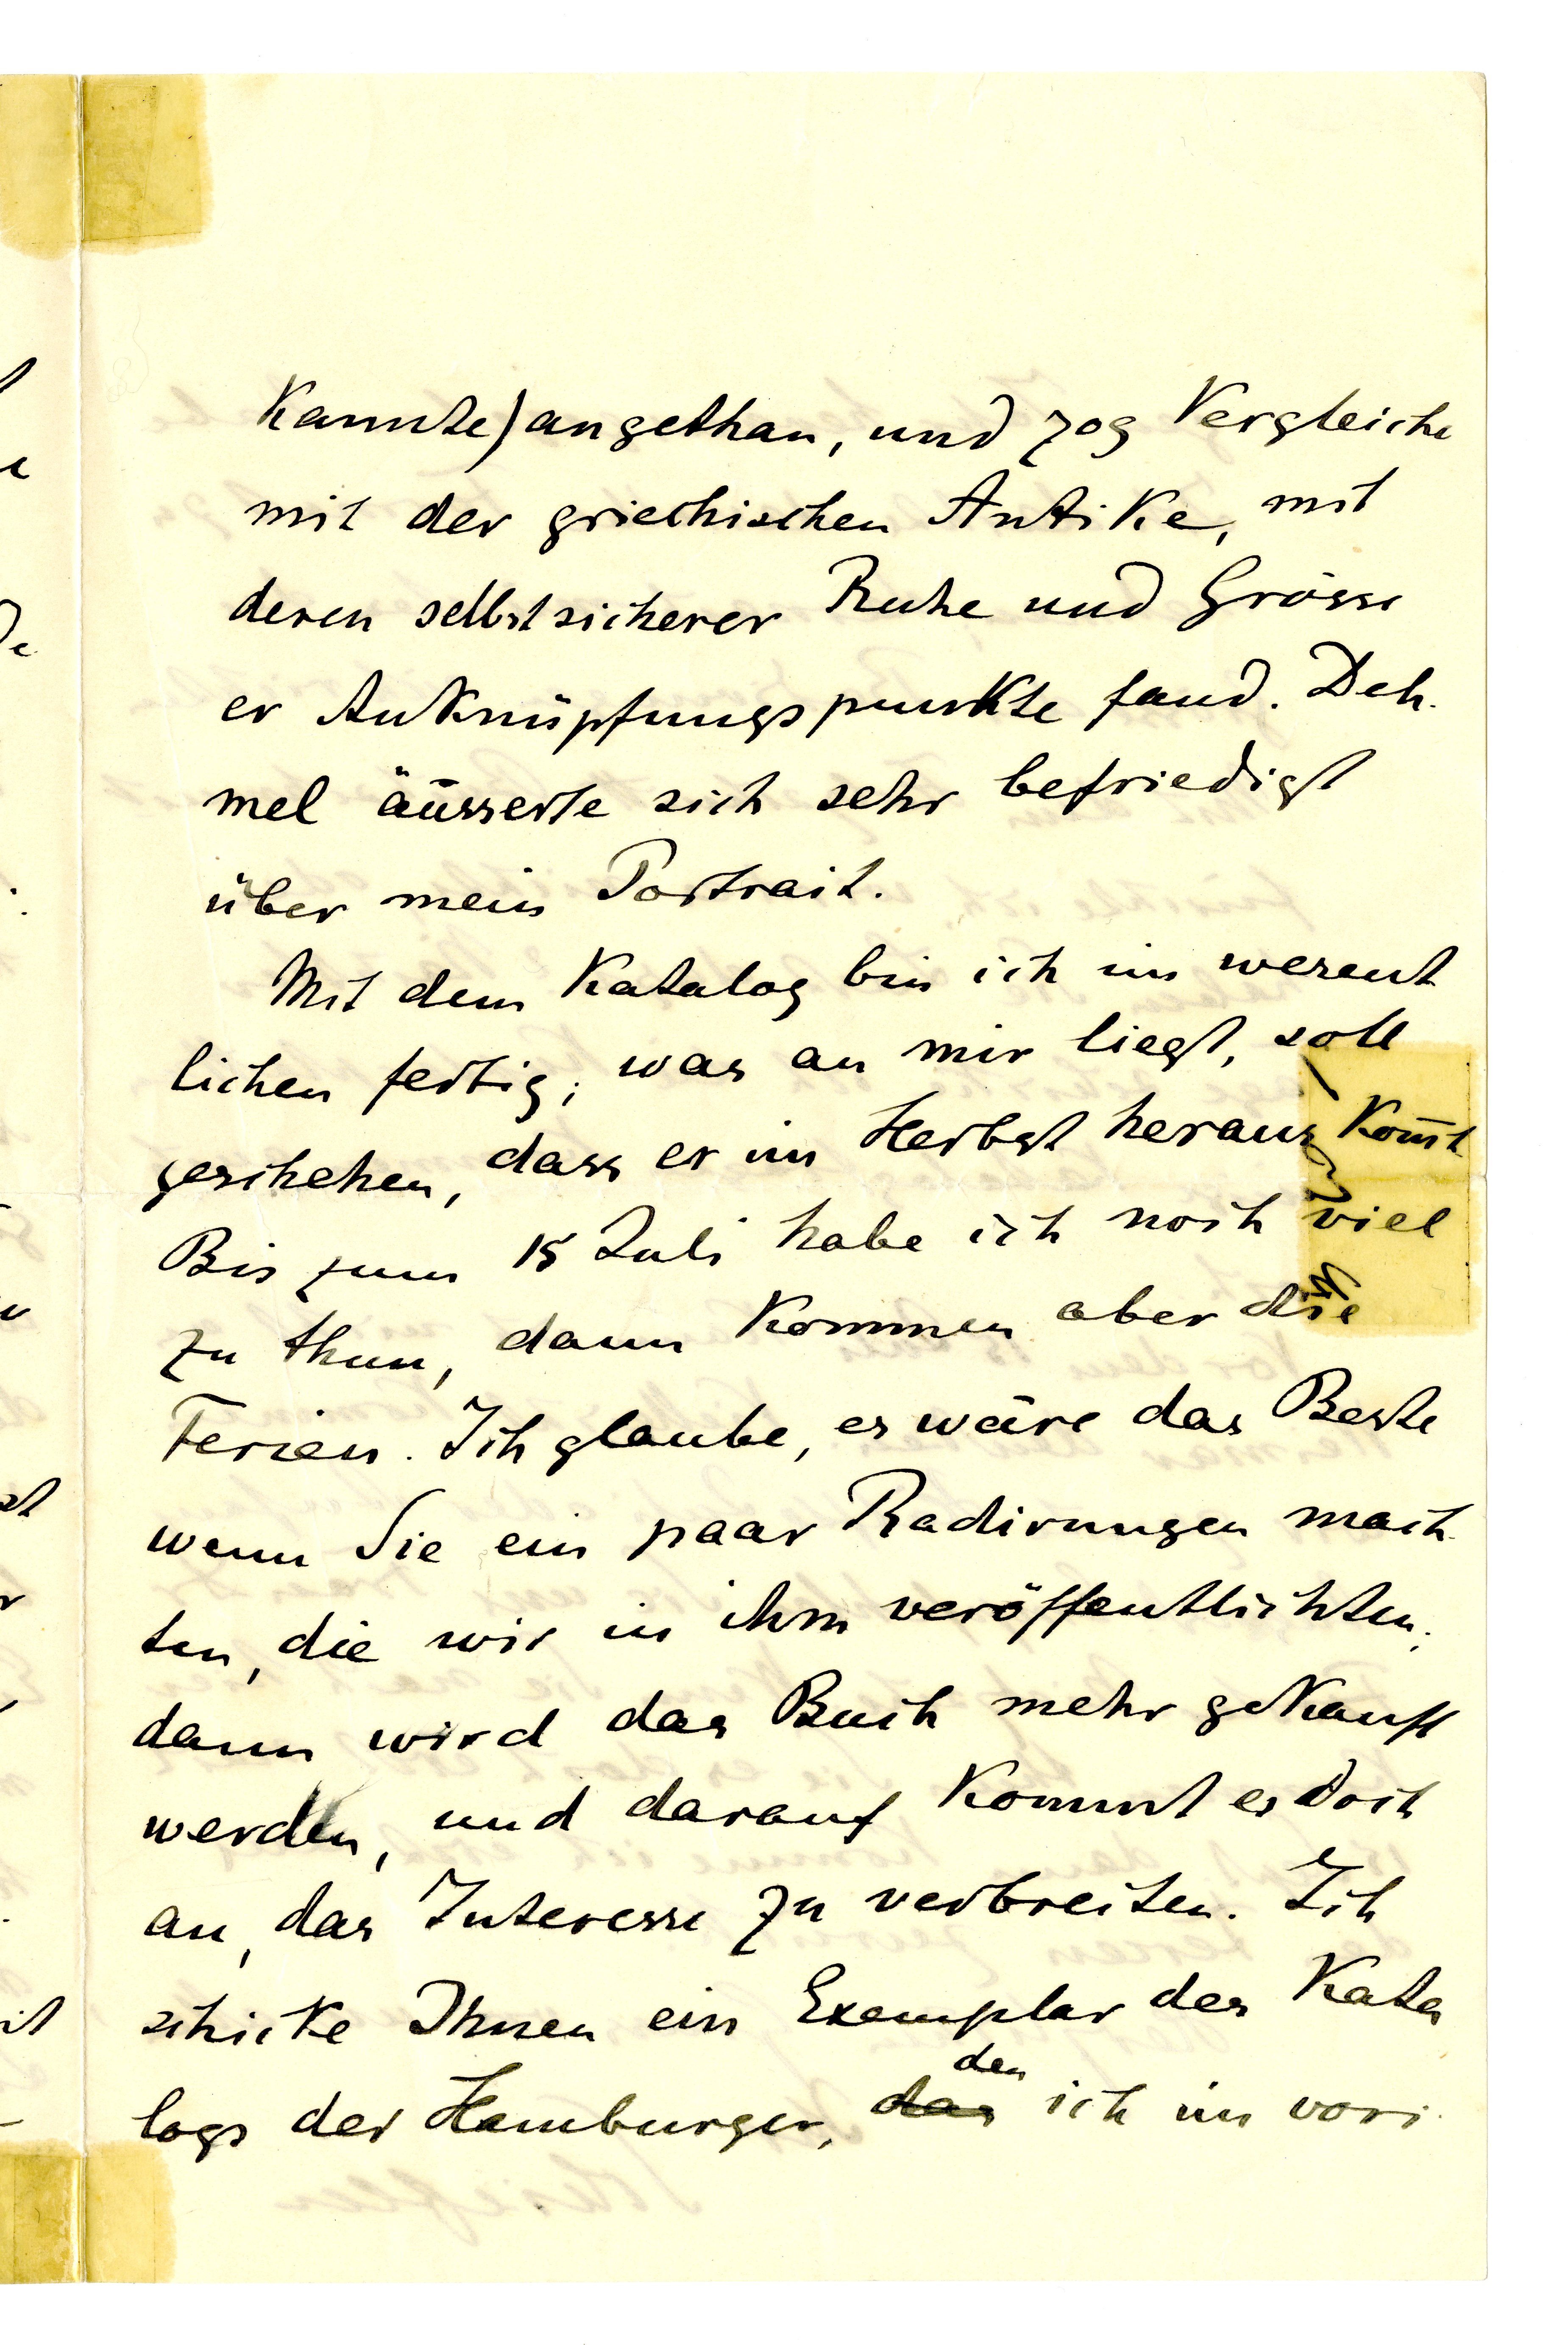 kannte) angethan, und zog Vergleiche
mit der griechischen Antike, mit
deren selbstsicherer Ruhe und Grösse
er Anknüpfungspunkte fand. Deh-
mel äusserte sich sehr befriedigt
über mein Portrait.
Mit dem Katalog bin ich im wesent
lichen fertig; was an mir liegt, soll
geschehen, dass er im Herbst heraus kom̅t
Bis zum 15 Juli habe ich noch viel
zu thun, dann kommen aber die
Ferien. Ich glaube, es wäre das Beste
wenn Sie ein paar Radirungen mach-
ten, die wir in ihm veröffentlichten;
dann wird das Buch mehr gekauft
werden, und darauf kommt es doch
an, das Interesse zu verbreiten. Ich
schicke Ihnen ein Exemplar des Kata
logs der Hamburger, das den ich im vori-